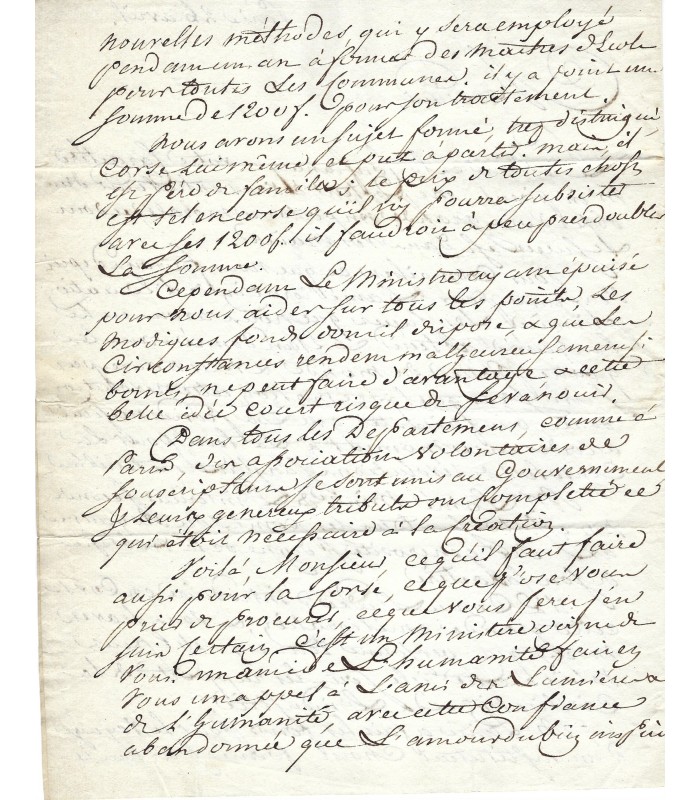 nouvelles méthodes, qui y sera employé
pendant un an à former des maitres d'Ecole
pour toutes les Communes. il y a joint une
somme de 1200f. pour son traitement.
nous avons un sujet formé, très distingué
corse lui même et prêt à partir. mais, il
est père de famille; le prix de toutes choses
est tel en corse qu'il n'y pourra subsister
avec ses 1200f. il faudroit à peu près doubler
la somme.
Cependant Le Ministre ayant épuisé
pour nous aider sur tous les points, les
modiques fonds dont il dispose, & que les
circonstances rendent malheureusement si
bornés, ne peut faire d'avantage & cette
belle idée court risque de s'évanouir.
Dans tous les Departemens, comme à
Paris, des association volontaires de
souscripteurs se sont unis au Gouvernement
& Leurs genereux tributs ont completté ce
qui étoit nécessaire à la Création.
Voilà Monsieur, ce qu'il faut faire
aussi pour la Corse, ce que j'ose vous
prier de procurer, ce que vous ferez j'en
suis certain. c'est un Ministre digne de
vous. un ami de L'humanité fait en
vous un appel à L'ami des Lumières &
de l'humanité, avec cette confiance
abandonnée que L'amour du bien inspire